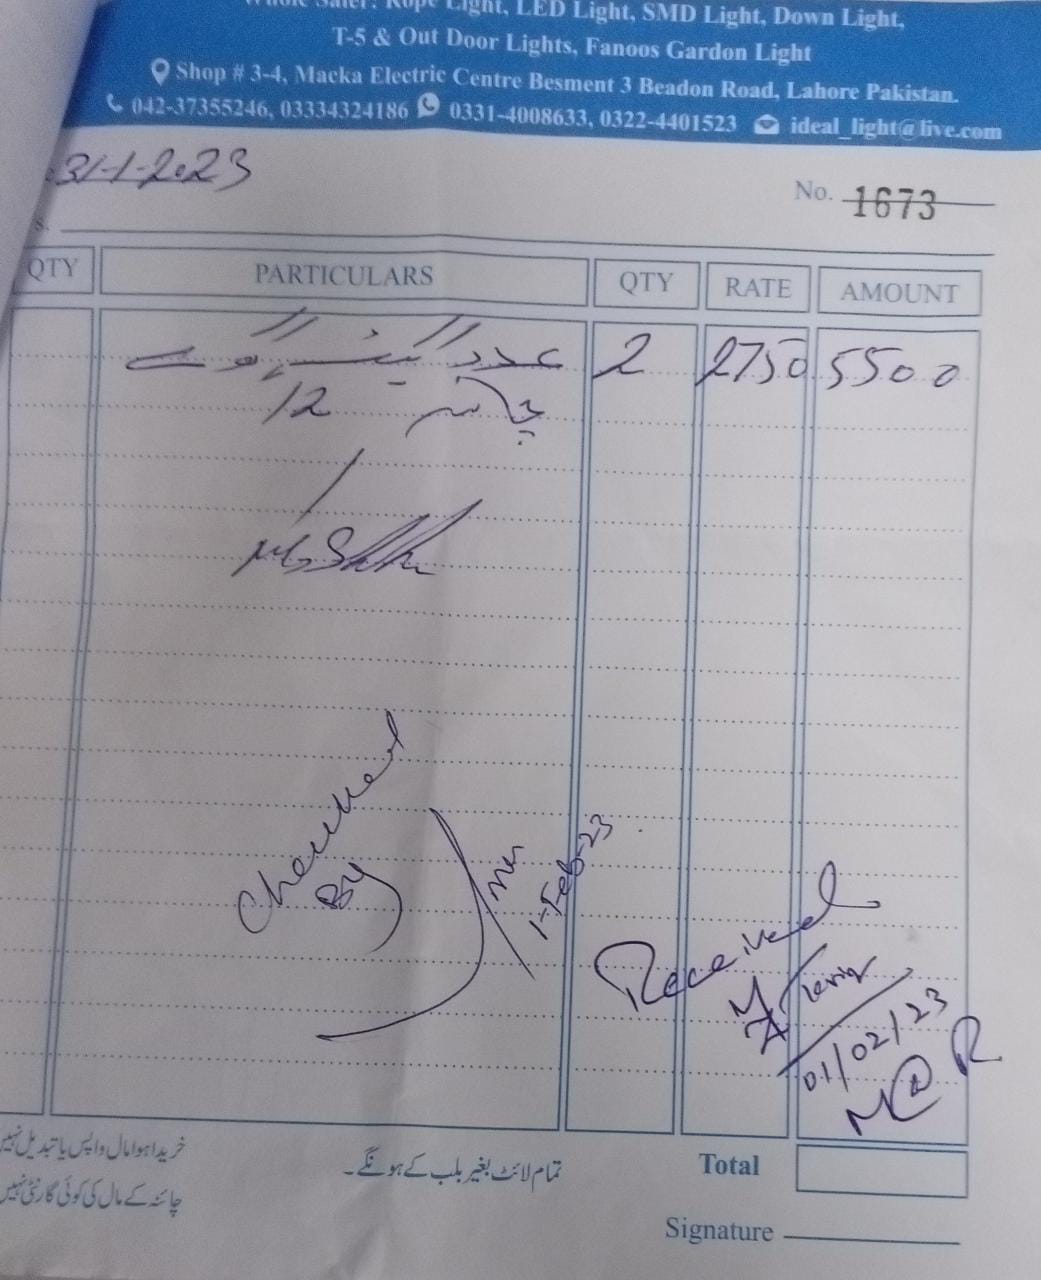 Whole Saler: Rope Light, LED Light, SMD Light, Down Light,
T-5 & Out Door Lights, Fanoos Gardon Light
Shop # 3-4, Macka Electric Centre Besment 3 Beadon Road, Lahore Pakistan.
042-37355246, 03334324186 0331-4008633, 0322-4401523 ideal_light@live.com
31-1-2023
No. 1673
QTY PARTICULARS QTY RATE AMOUNT
عدد 2 2750 5500
12
Checked
By
1-Feb-23
Received
01/02/23
خریدا ہوا مال واپس یا تبدیل نہیں
تمام لائٹ بغیر بلب کے ہونگے۔
Total
چائنہ کے مال کی کوئی گارنٹی نہیں
Signature